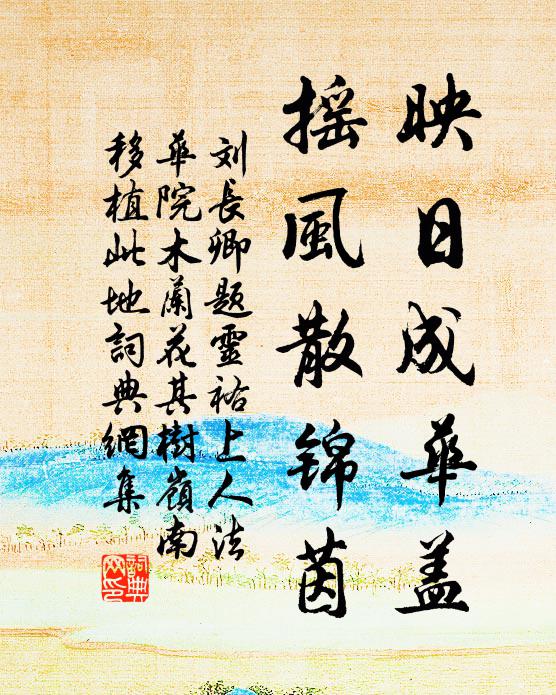 映日成華盖
摇風散锦茵
刘長卿題靈祐上人法
華院木蘭花其樹嶺南
移植此地詞典網集
詞典
网印